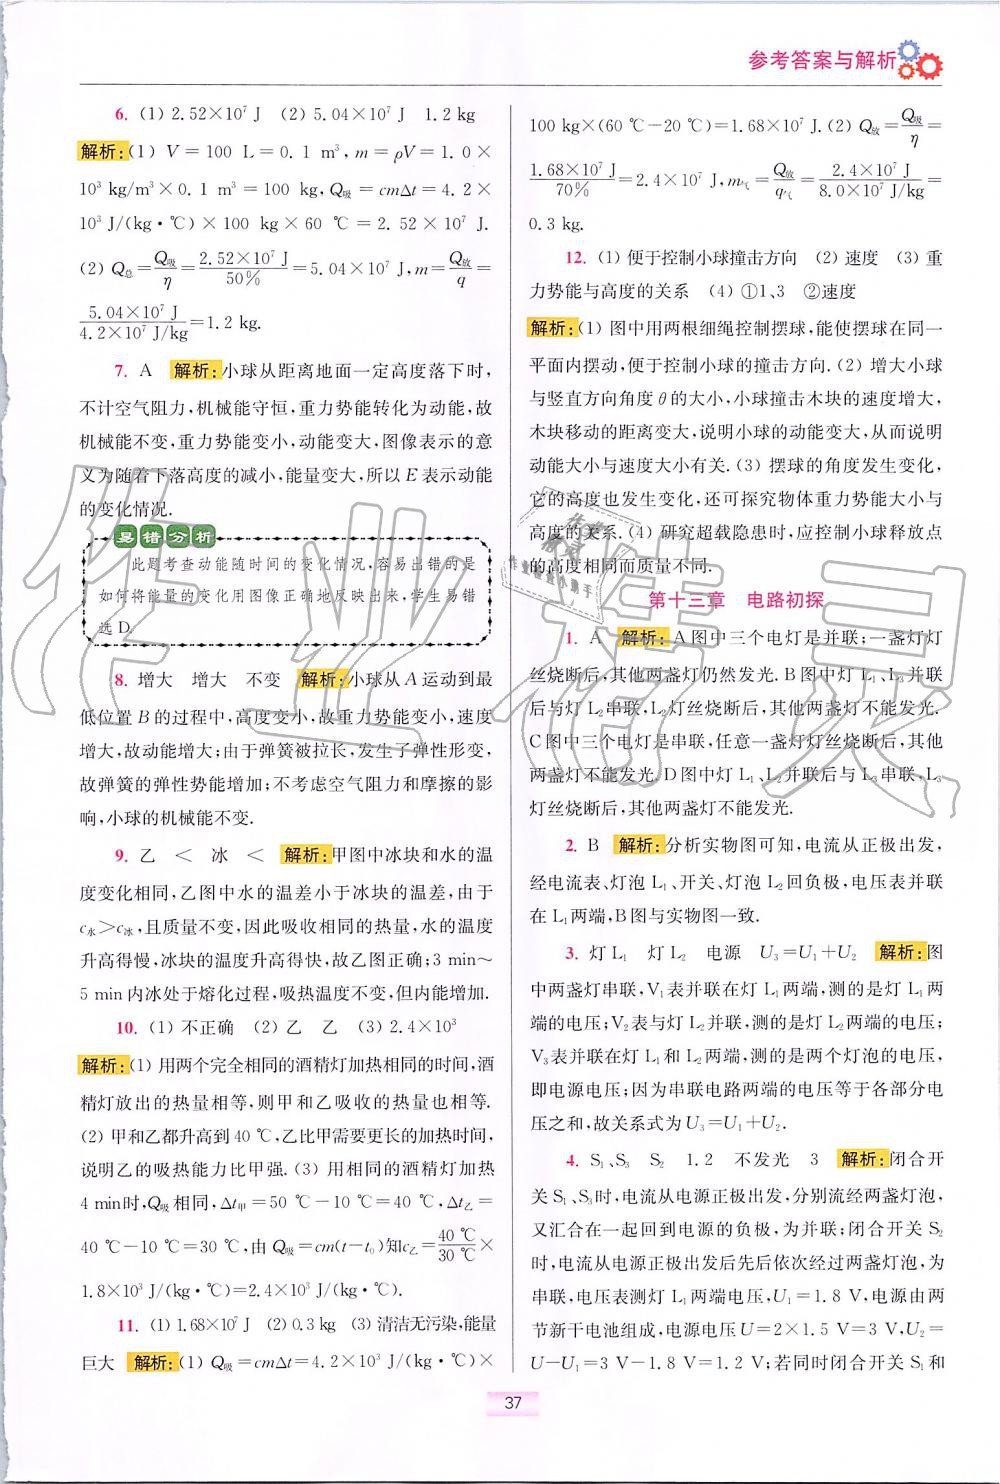 参考答案与解析
6. (1) 2.52×10⁷ J (2) 5.04×10⁷ J 1.2 kg
解析:(1) V=100 L=0.1 m³,m=ρV=1.0×
10³ kg/m³×0.1 m³=100 kg,Q吸=cmΔt=4.2×
10³ J/(kg·℃)×100 kg×60 ℃=2.52×10⁷ J.
(2) Q总=Q吸/η=2.52×10⁷ J/50%=5.04×10⁷ J,m=Q放/q=
5.04×10⁷ J/4.2×10⁷ J/kg=1.2 kg.
7. A 解析:小球从距离地面一定高度落下时,
不计空气阻力,机械能守恒,重力势能转化为动能,故
机械能不变,重力势能变小,动能变大,图像表示的意
义为随着下落高度的减小,能量变大,所以E表示动能
的变化情况.
易错分析
此题考查动能随时间的变化情况,容易出错的是
如何将能量的变化用图像正确地反映出来,学生易错
选D.
8. 增大 增大 不变 解析:小球从A运动到最
低位置B的过程中,高度变小,故重力势能变小,速度
增大,故动能增大;由于弹簧被拉长,发生了弹性形变,
故弹簧的弹性势能增加;不考虑空气阻力和摩擦的影
响,小球的机械能不变.
9. 乙 < 冰 < 解析:甲图中冰块和水的温
度变化相同,乙图中水的温差小于冰块的温差,由于
c水>c冰,且质量不变,因此吸收相同的热量,水的温度
升高得慢,冰块的温度升高得快,故乙图正确;3 min~
5 min内冰处于熔化过程,吸热温度不变,但内能增加.
10. (1) 不正确 (2) 乙 乙 (3) 2.4×10³
解析:(1) 用两个完全相同的酒精灯加热相同的时间,酒
精灯放出的热量相等,则甲和乙吸收的热量也相等.
(2) 甲和乙都升高到40 ℃,乙比甲需要更长的加热时间,
说明乙的吸热能力比甲强.(3) 用相同的酒精灯加热
4 min时,Q吸相同,Δt甲=50 ℃-10 ℃=40 ℃,Δt乙=
40 ℃-10 ℃=30 ℃,由Q吸=cm(t-t₀)知c乙=40 ℃/30 ℃×
1.8×10³ J/(kg·℃)=2.4×10³ J/(kg·℃).
11. (1) 1.68×10⁷ J (2) 0.3 kg (3) 清洁无污染,能量
巨大 解析:(1) Q吸=cmΔt=4.2×10³ J/(kg·℃)×
100 kg×(60 ℃-20 ℃)=1.68×10⁷ J.(2) Q放=Q吸/η=
1.68×10⁷ J/70%=2.4×10⁷ J,m气=Q放/q气=2.4×10⁷ J/8.0×10⁷ J/kg=
0.3 kg.
12. (1) 便于控制小球撞击方向 (2) 速度 (3) 重
力势能与高度的关系 (4) ①1、3 ②速度
解析:(1) 图中用两根细绳控制摆球,能使摆球在同一
平面内摆动,便于控制小球的撞击方向.(2) 增大小球
与竖直方向角度θ的大小,小球撞击木块的速度增大,
木块移动的距离变大,说明小球的动能变大,从而说明
动能大小与速度大小有关.(3) 摆球的角度发生变化,
它的高度也发生变化,还可探究物体重力势能大小与
高度的关系.(4) 研究超载隐患时,应控制小球释放点
的高度相同而质量不同.
第十三章 电路初探
1. A 解析:A图中三个电灯是并联;一盏灯灯
丝烧断后,其他两盏灯仍然发光.B图中灯L₁、L₃并联
后与灯L₂串联,L₂灯丝烧断后,其他两盏灯不能发光.
C图中三个电灯是串联,任意一盏灯灯丝烧断后,其他
两盏灯不能发光.D图中灯L₁、L₂并联后与L₃串联,L₃
灯丝烧断后,其他两盏灯不能发光.
2. B 解析:分析实物图可知,电流从正极出发,
经电流表、灯泡L₁、开关、灯泡L₂回负极,电压表并联
在L₁两端,B图与实物图一致.
3. 灯L₁ 灯L₂ 电源 U₃=U₁+U₂ 解析:图
中两盏灯串联,V₁表并联在灯L₁两端,测的是灯L₁两
端的电压;V₂表与灯L₂并联,测的是灯L₂两端的电压;
V₃表并联在灯L₁和L₂两端,测的是两个灯泡的电压,
即电源电压;因为串联电路两端的电压等于各部分电
压之和,故关系式为U₃=U₁+U₂.
4. S₁、S₃ S₂ 1.2 不发光 3 解析:闭合开
关S₁、S₃时,电流从电源正极出发,分别流经两盏灯泡,
又汇合在一起回到电源的负极,为并联;闭合开关S₂
时,电流从电源正极出发后先后依次经过两盏灯泡,为
串联,电压表测灯L₁两端电压,U₁=1.8 V,电源由两
节新干电池组成,电源电压U=2×1.5 V=3 V,U₂=
U-U₁=3 V-1.8 V=1.2 V;若同时闭合开关S₁和
37
作业精灵